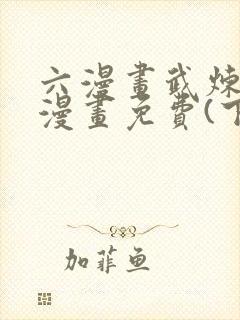 六漫畫武煉
漫畫免費(下
加菲鱼